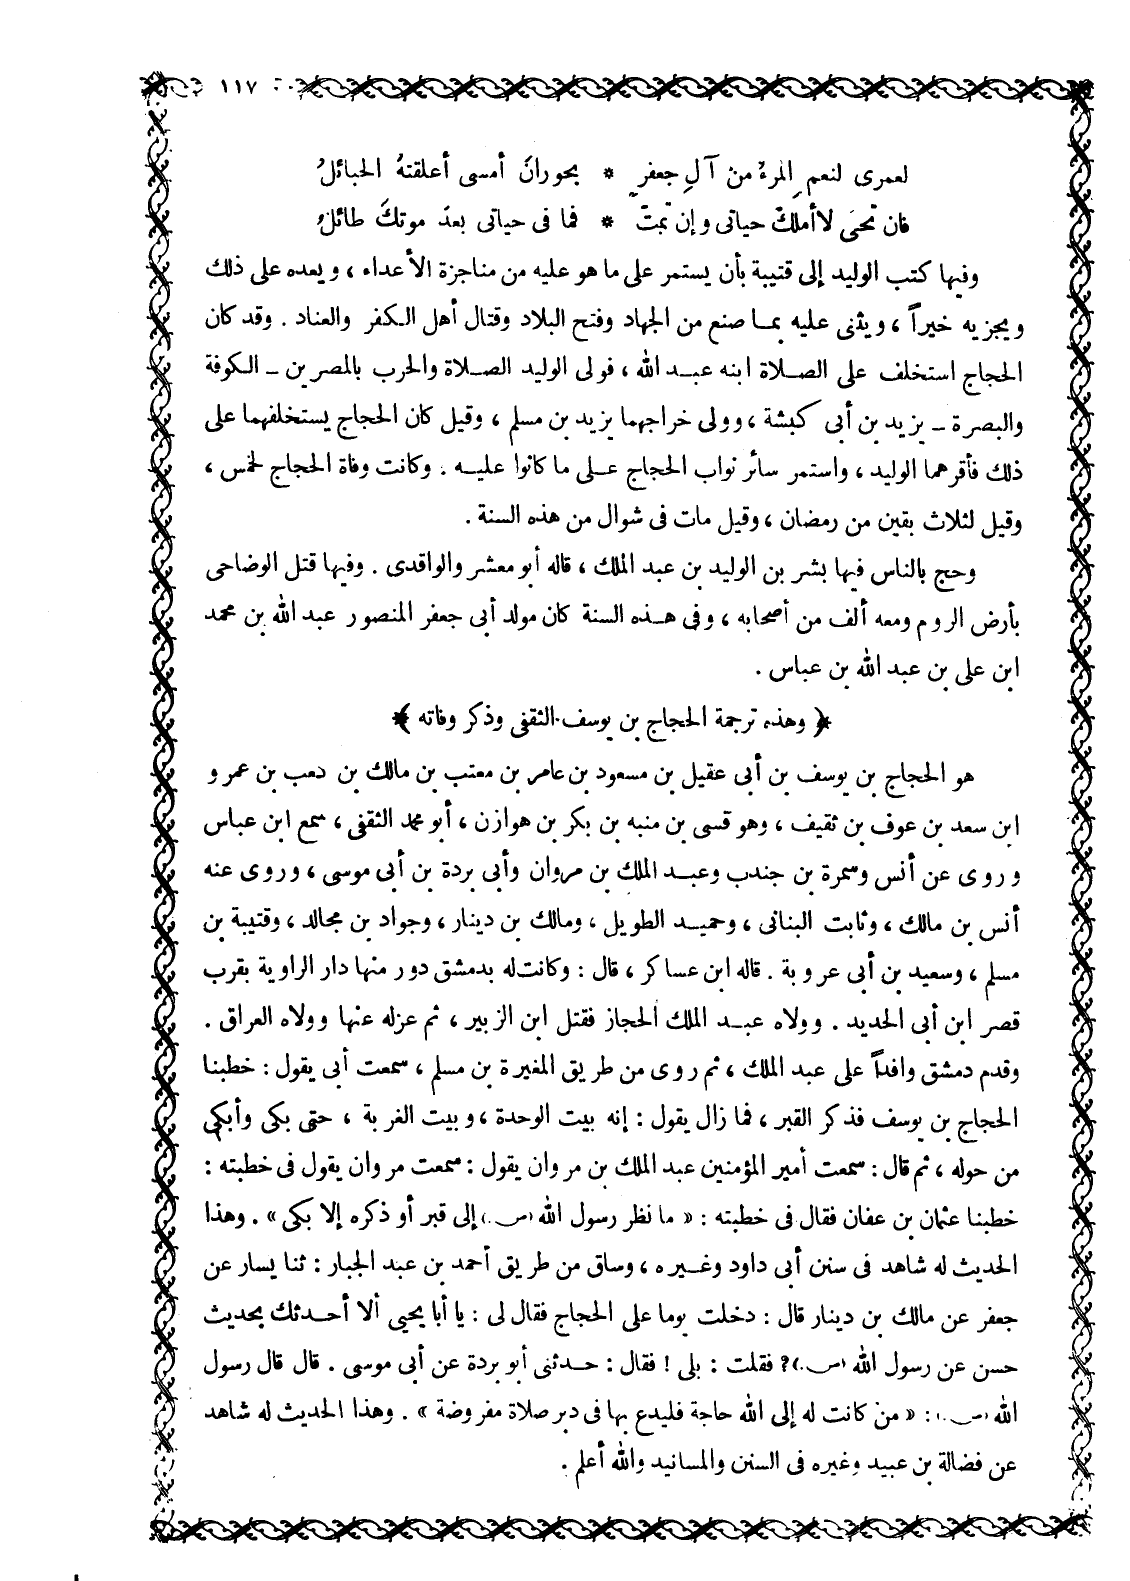 ١١٧
لعمرى لنعم المرء من آل جعفر * بحوران أمسى أعلقته الحبائل
فان تحيَى لا أملك حياتى وإن تمت * فما فى حياتى بعد موتك طائل
وفيها كتب الوليد إلى قتيبة بأن يستمر على ما هو عليه من مناجزة الأعداء ، ويعده على ذلك
ويجزيه خيراً ، ويثنى عليه بمـا صنع من الجهاد وفتح البلاد وقتال أهل الكفر والعناد . وقد كان
الحجاج استخلف على الصلاة ابنه عبد الله ، فولى الوليد الصلاة والحرب بالمصرين ـ الكوفة
والبصرة ـ يزيد بن أبى كبشة ، وولى خراجهما يزيد بن مسلم ، وقيل كان الحجاج يستخلفهما على
ذلك فأقرهما الوليد ، واستمر سائر نواب الحجاج على ما كانوا عليه . وكانت وفاة الحجاج لخمس ،
وقيل لثلاث بقين من رمضان ، وقيل مات فى شوال من هذه السنة .
وحج بالناس فيها بشر بن الوليد بن عبد الملك ، قاله أبو معشر والواقدى . وفيها قتل الوضاحى
بأرض الروم ومعه ألف من أصحابه ، وفى هذه السنة كان مولد أبى جعفر المنصور عبد الله بن محمد
ابن على بن عبد الله بن عباس .
﴿ وهذه ترجمة الحجاج بن يوسف الثقفى وذكر وفاته ﴾
هو الحجاج بن يوسف بن أبى عقيل بن مسعود بن عامر بن معتب بن مالك بن كعب بن عمرو
ابن سعد بن عوف بن ثقيف ، وهو قسى بن منبه بن بكر بن هوازن ، أبو محمد الثقفى ، سمع ابن عباس
وروى عن أنس وسمرة بن جندب وعبد الملك بن مروان وأبى بردة بن أبى موسى ، وروى عنه
أنس بن مالك ، وثابت البنانى ، وحميد الطويل ، ومالك بن دينار ، وجواد بن مجالد ، وقتيبة بن
مسلم ، وسعيد بن أبى عروبة . قاله ابن عساكر ، قال : وكانت له بدمشق دور منها دار الراوية بقرب
قصر ابن أبى الحديد . وولاه عبد الملك الحجاز فقتل ابن الزبير ، ثم عزله عنها وولاه العراق .
وقدم دمشق وافداً على عبد الملك ، ثم روى من طريق المغيرة بن مسلم ، سمعت أبى يقول : خطبنا
الحجاج بن يوسف فذكر القبر ، فما زال يقول : إنه بيت الوحدة ، وبيت الغربة ، حتى بكى وأبكى
من حوله ، ثم قال : سمعت أمير المؤمنين عبد الملك بن مروان يقول : سمعت مروان يقول فى خطبته :
خطبنا عثمان بن عفان فقال فى خطبته : « ما نظر رسول الله (ص) إلى قبر أو ذكره إلا بكى » . وهذا
الحديث له شاهد فى سنن أبى داود وغيره ، وساق من طريق أحمد بن عبد الجبار : ثنا يسار عن
جعفر عن مالك بن دينار قال : دخلت يوما على الحجاج فقال لى : يا أبا يحيى ألا أحدثك بحديث
حسن عن رسول الله (ص) ؟ فقلت : بلى ! فقال : حدثنى أبو بردة عن أبى موسى . قال قال رسول
الله (ص) : « من كانت له إلى الله حاجة فليدع بها فى دبر صلاة مفروضة » . وهذا الحديث له شاهد
عن فضالة بن عبيد وغيره فى السنن والمسانيد والله أعلم .